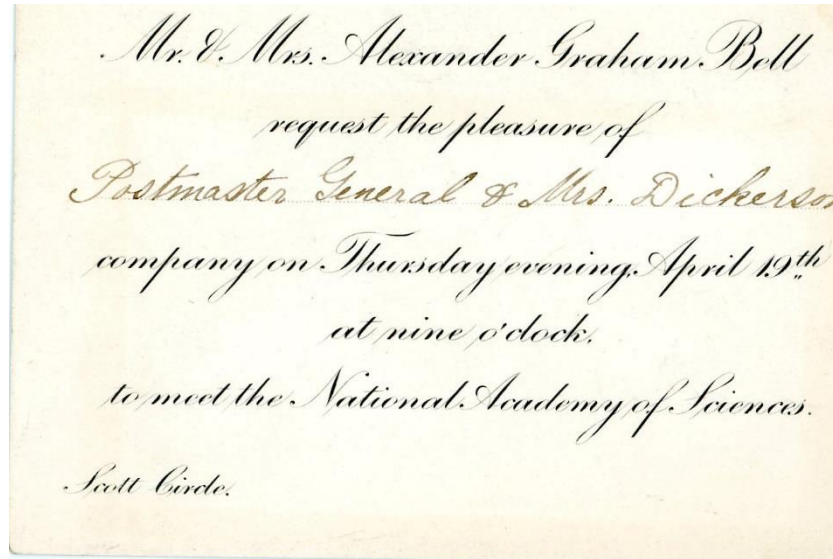 Mr. & Mrs. Alexander Graham Bell
request the pleasure of
Postmaster General & Mrs. Dickerson
company on Thursday evening, April 19th
at nine o'clock,
to meet the National Academy of Sciences.
Scott Circle.